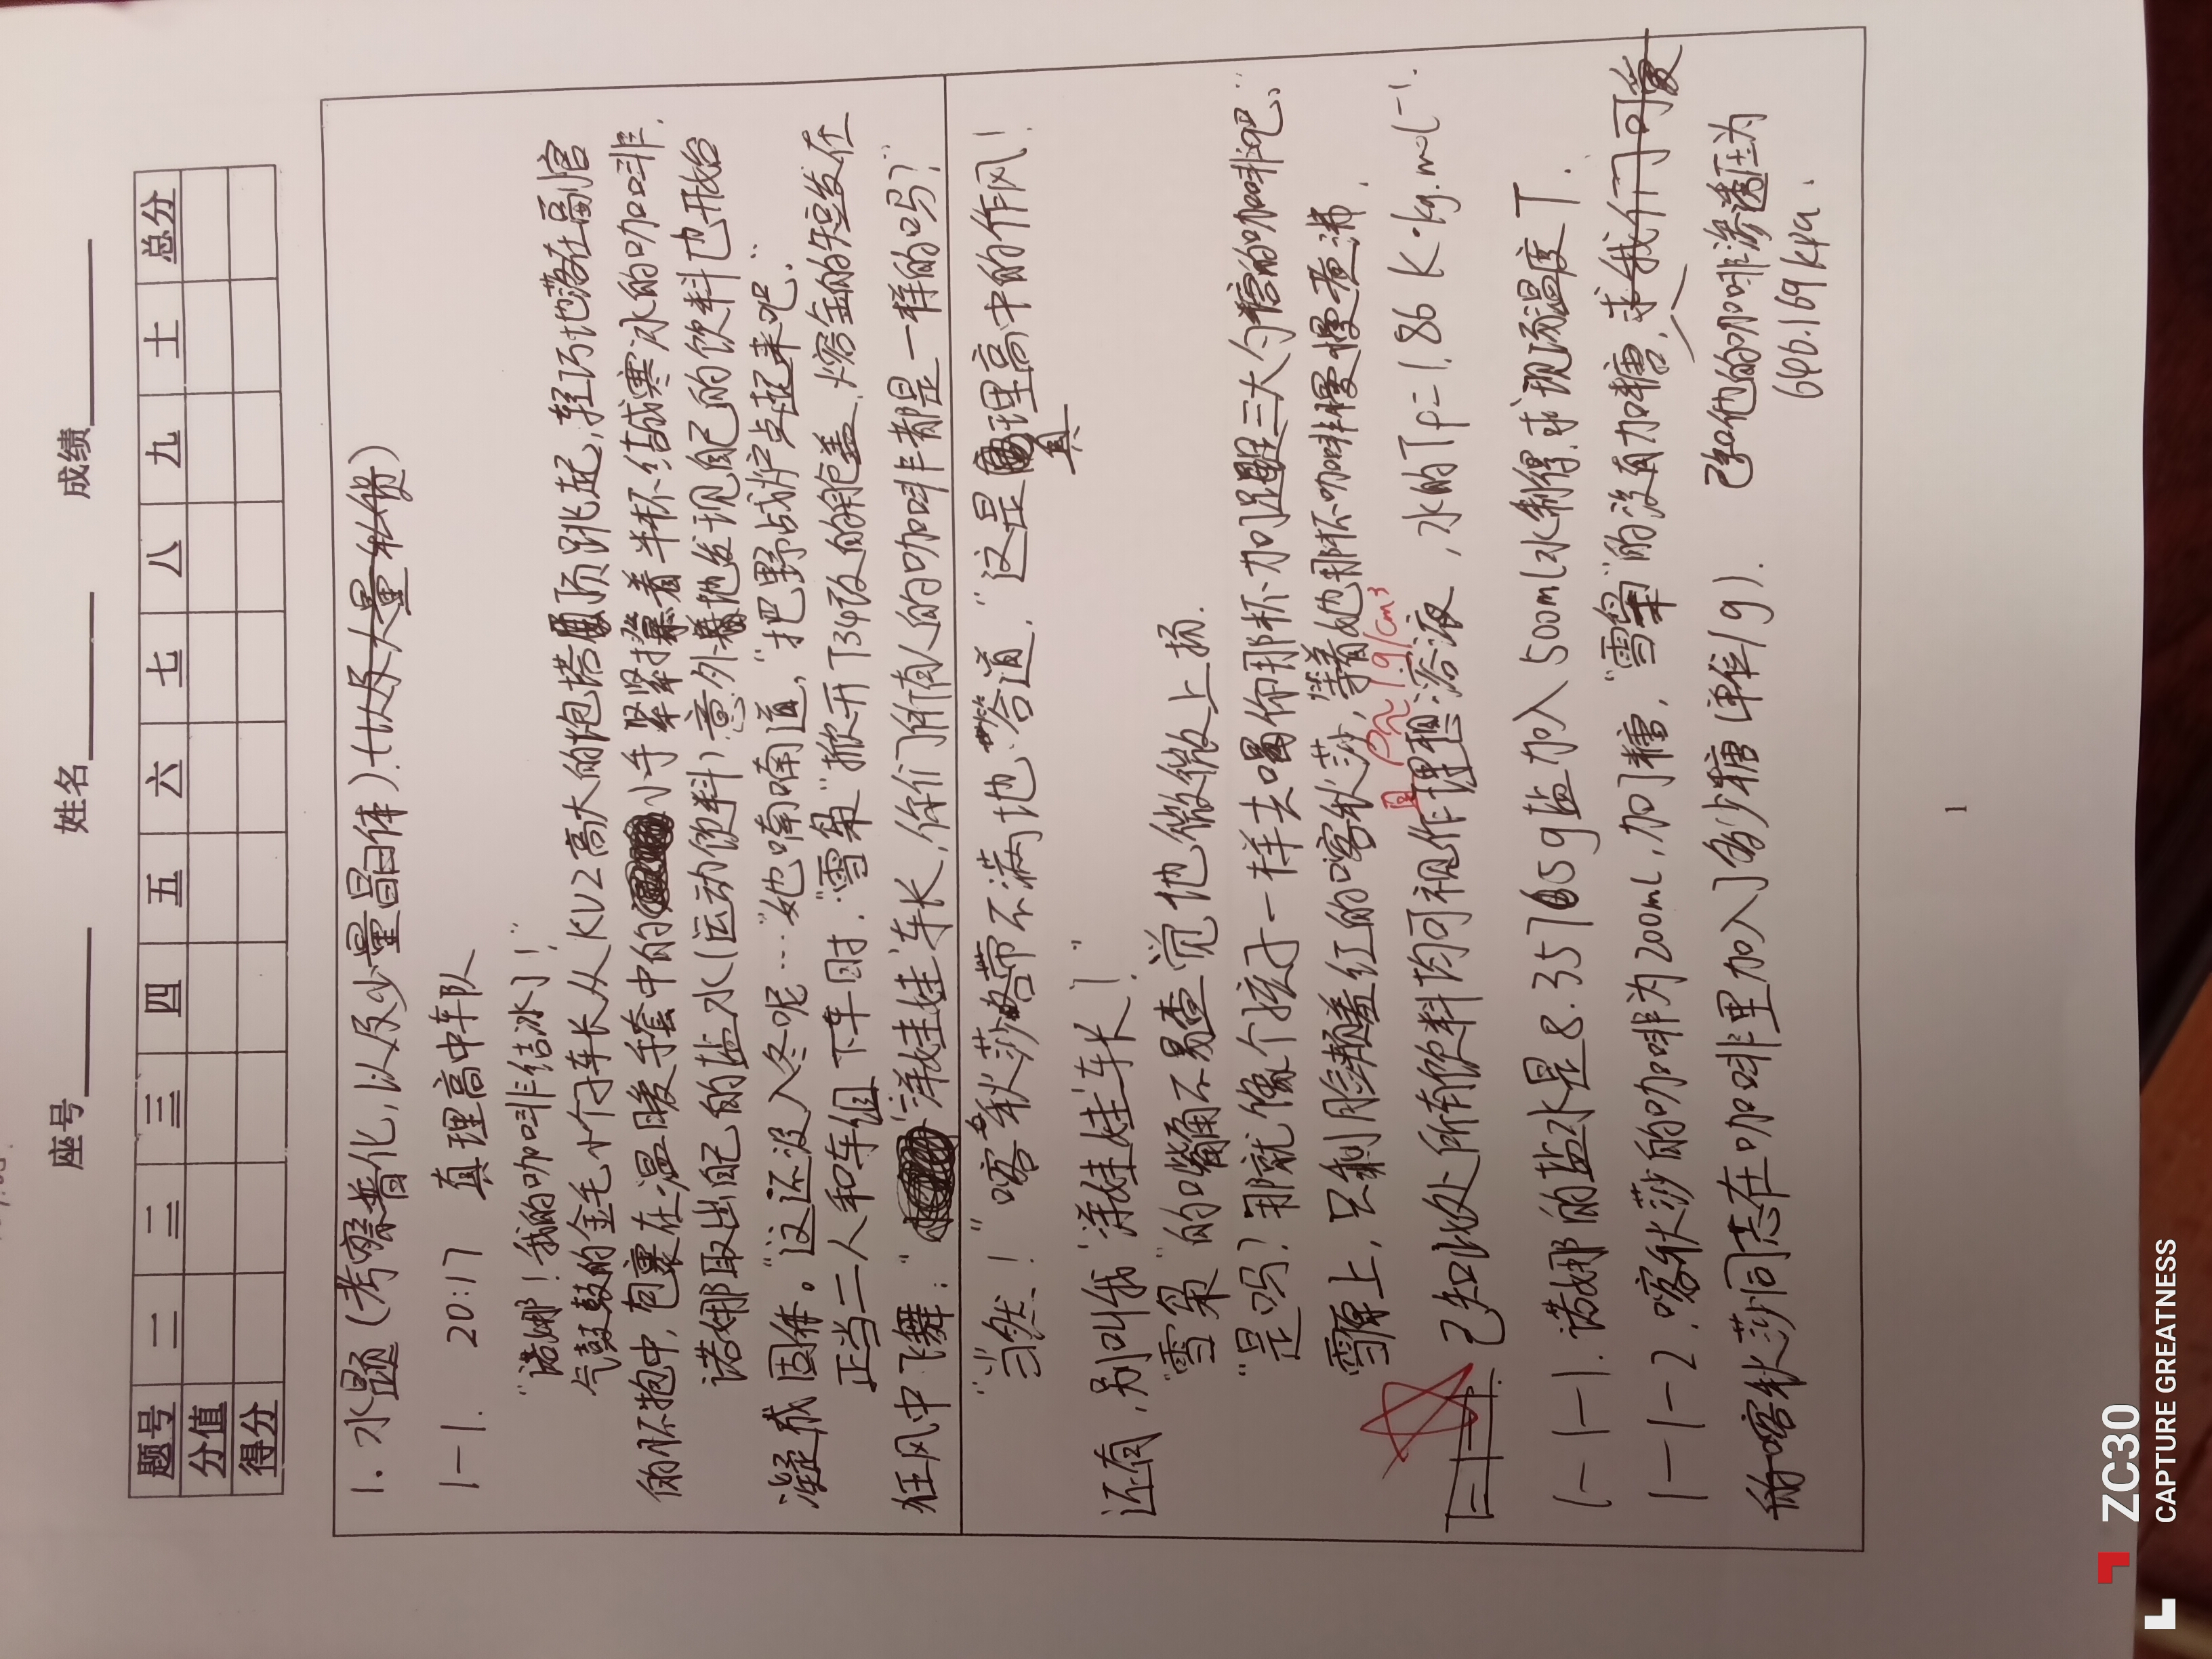 座号 姓名 成绩
题号 一 二 三 四 五 六 七 八 九 十 总分
分值
得分
1. 水题(考察普化,以及少量晶体).(以及大量私货)
1-1. 20:17 真理高中车队
“诺娜!我的咖啡结冰了!”
气鼓鼓的金毛小个子车长从KV2高大的炮塔顶跳起,轻巧地落在副官
的怀抱中,包裹在温暖手套中的小手紧攥着半杯结成寒冰的咖啡.
诺娜取出自己的盐水(运动饮料)意外地发现自己的饮料也开始
凝成固体。“这还没入冬呢……”她喃喃道,“把野战炉点起来吧.”
正当二人和车组下车时.“雪枭”掀开了34改的舱盖.熔金的短发在
狂风中飞舞:“‘洋娃娃’车长,你们所有人的咖啡都是一样的吗?”
“当然!”喀秋莎带不满地答道.“这是真理高中的作风!
还有,别叫我‘洋娃娃’车长!”
“雪枭”的嘴角不易查觉地微微上扬.
“是吗?那就像个孩子一样去喝你那杯加了三大勺糖的咖啡吧.”
雪原上,只剩脸颊羞红的喀秋莎,等着她那杯咖啡慢慢煮沸.
已知此处所有饮料均可视作理想溶液,水的Tf=1.86 K·kg·mol-1.
且ρ≈1g/cm3
1-1-1.诺娜的盐水是8.35765g盐加入500ml水制得.求现场温度T.
1-1-2.喀秋莎的咖啡为200ml,加了糖,“雪枭”的没有加糖,求我们可爱
的喀秋莎同志在咖啡里加入了多少糖(单位/g). 已知他的咖啡渗透压为
646.169kpa.
1
ZC30
CAPTURE GREATNESS